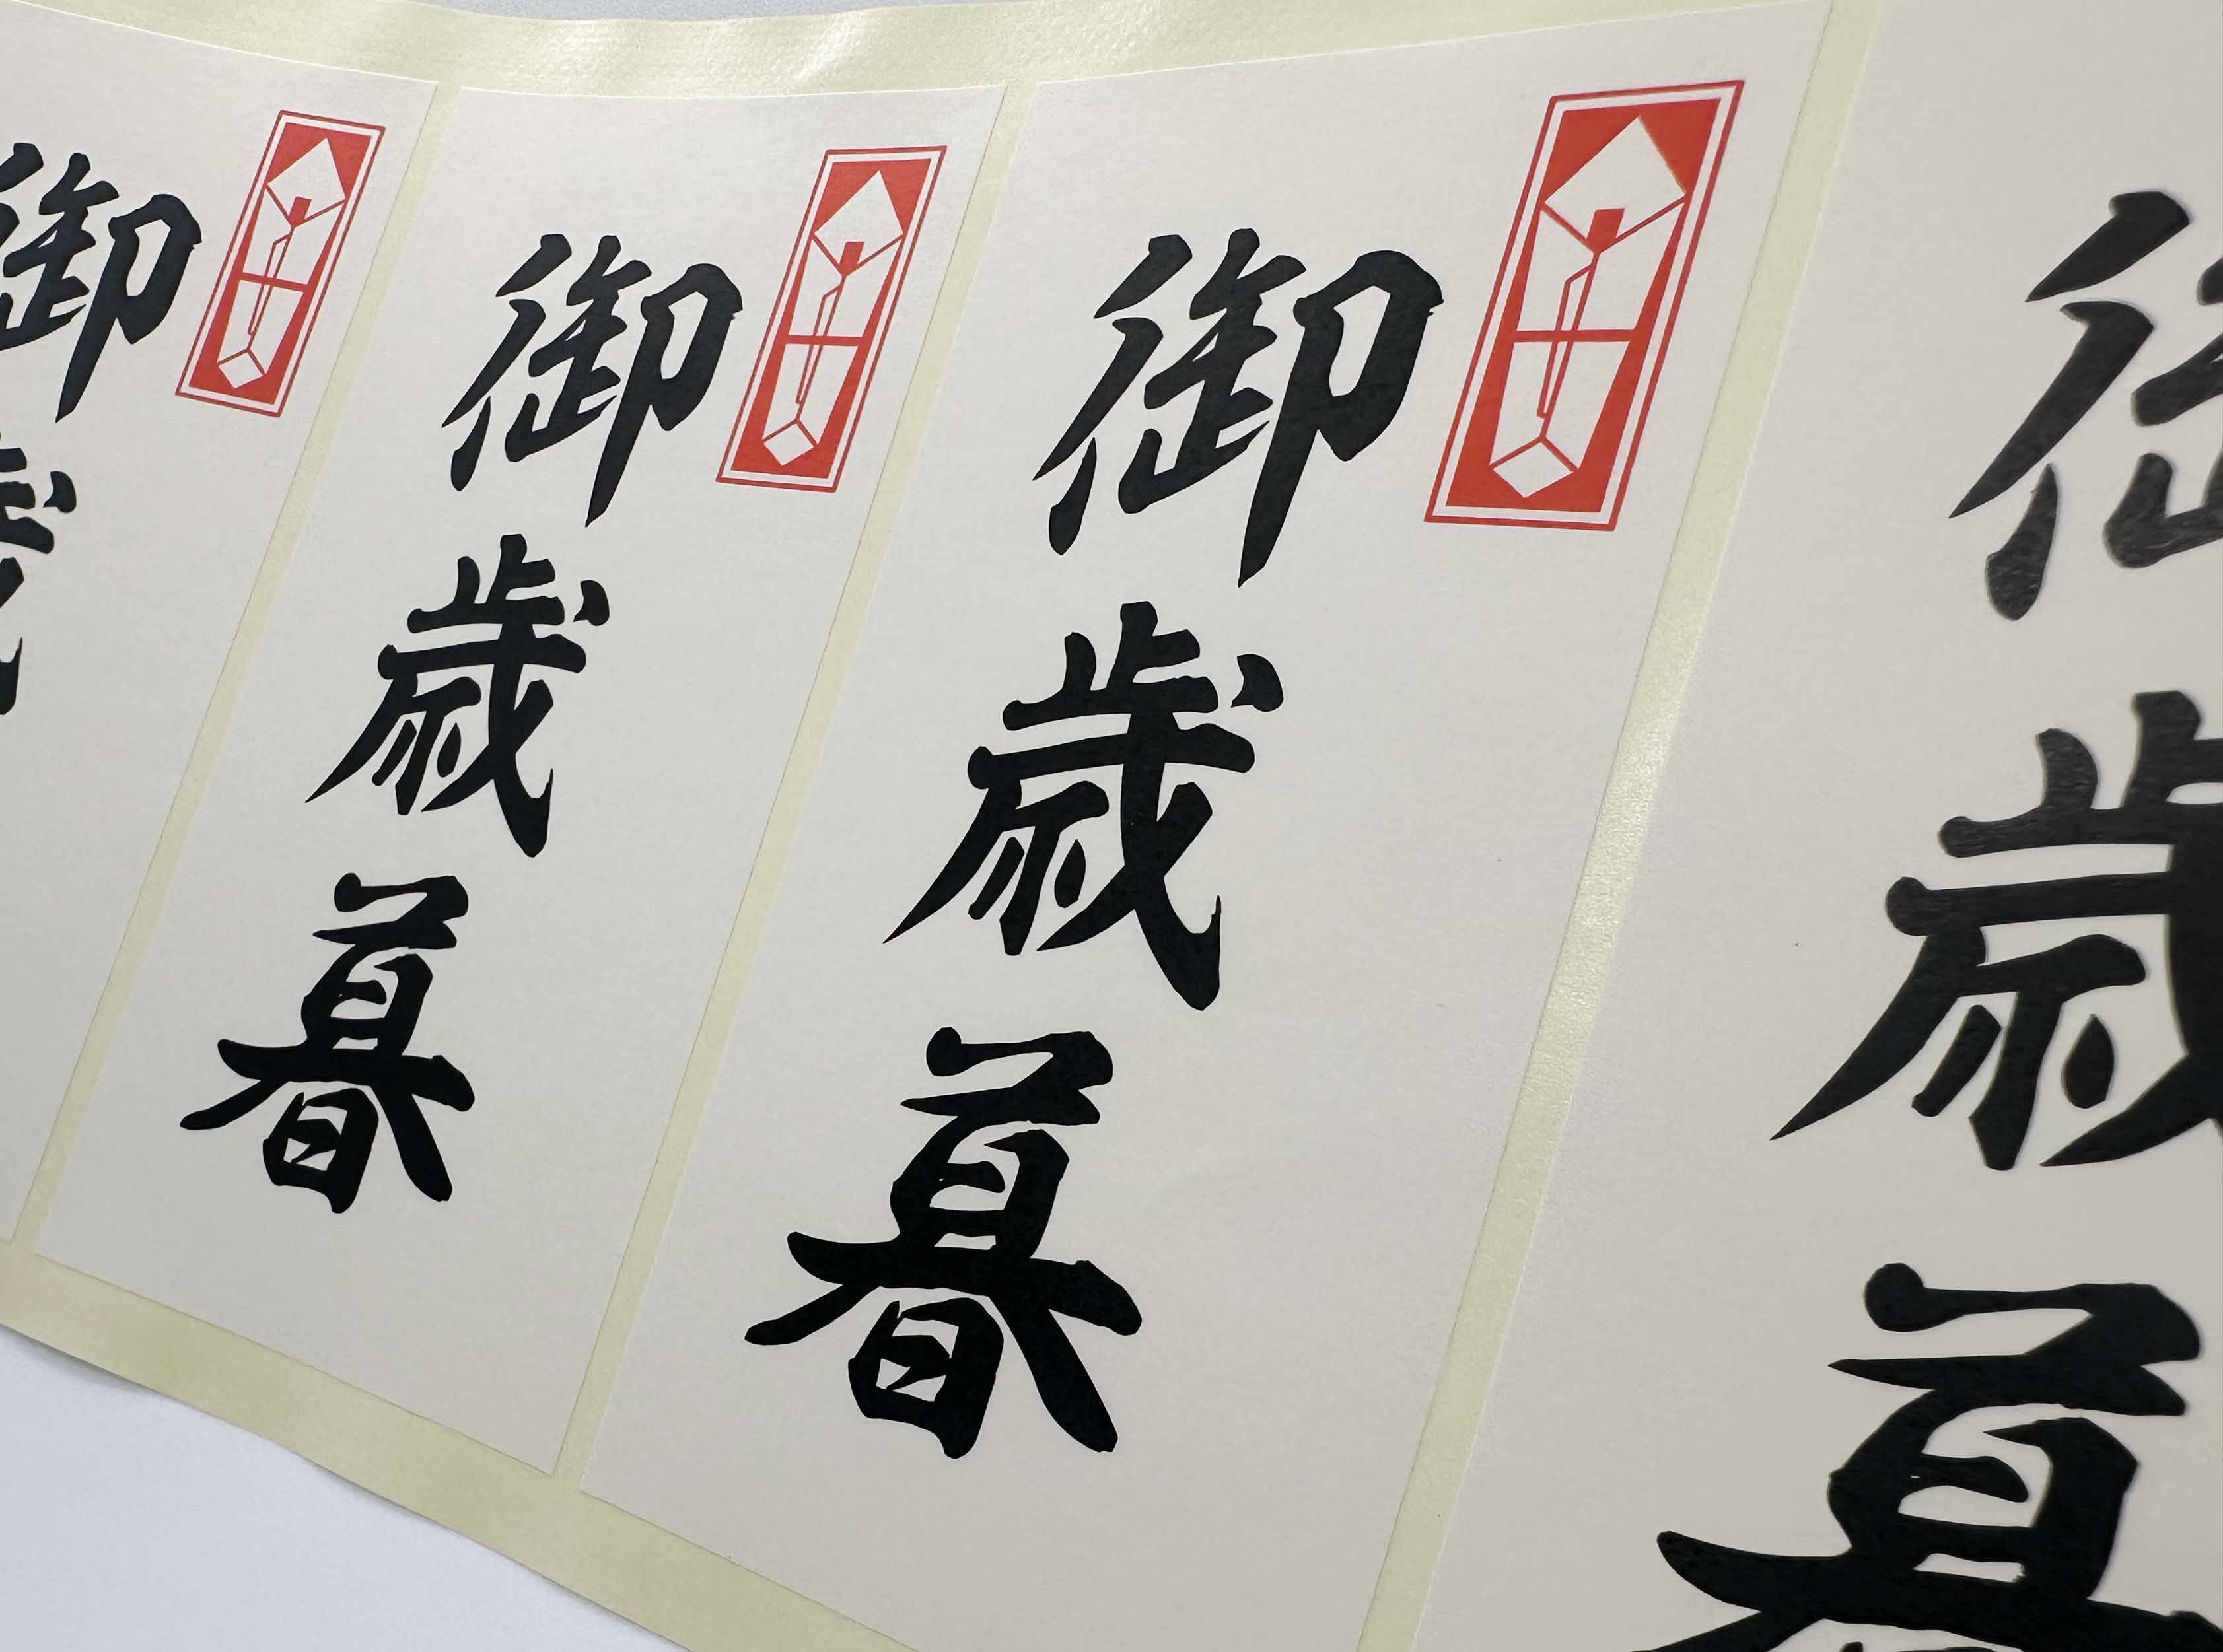 御歳暮
御歳暮
御歳暮
御歳